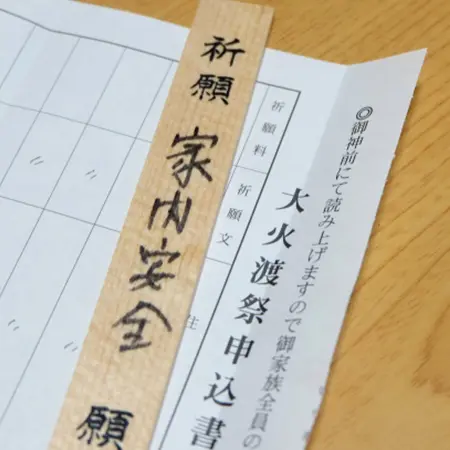 ◎御神前にて読み上げますので御家族全員の
大火渡祭申込書
祈願料
祈願文
住
祈願
家内安全
願